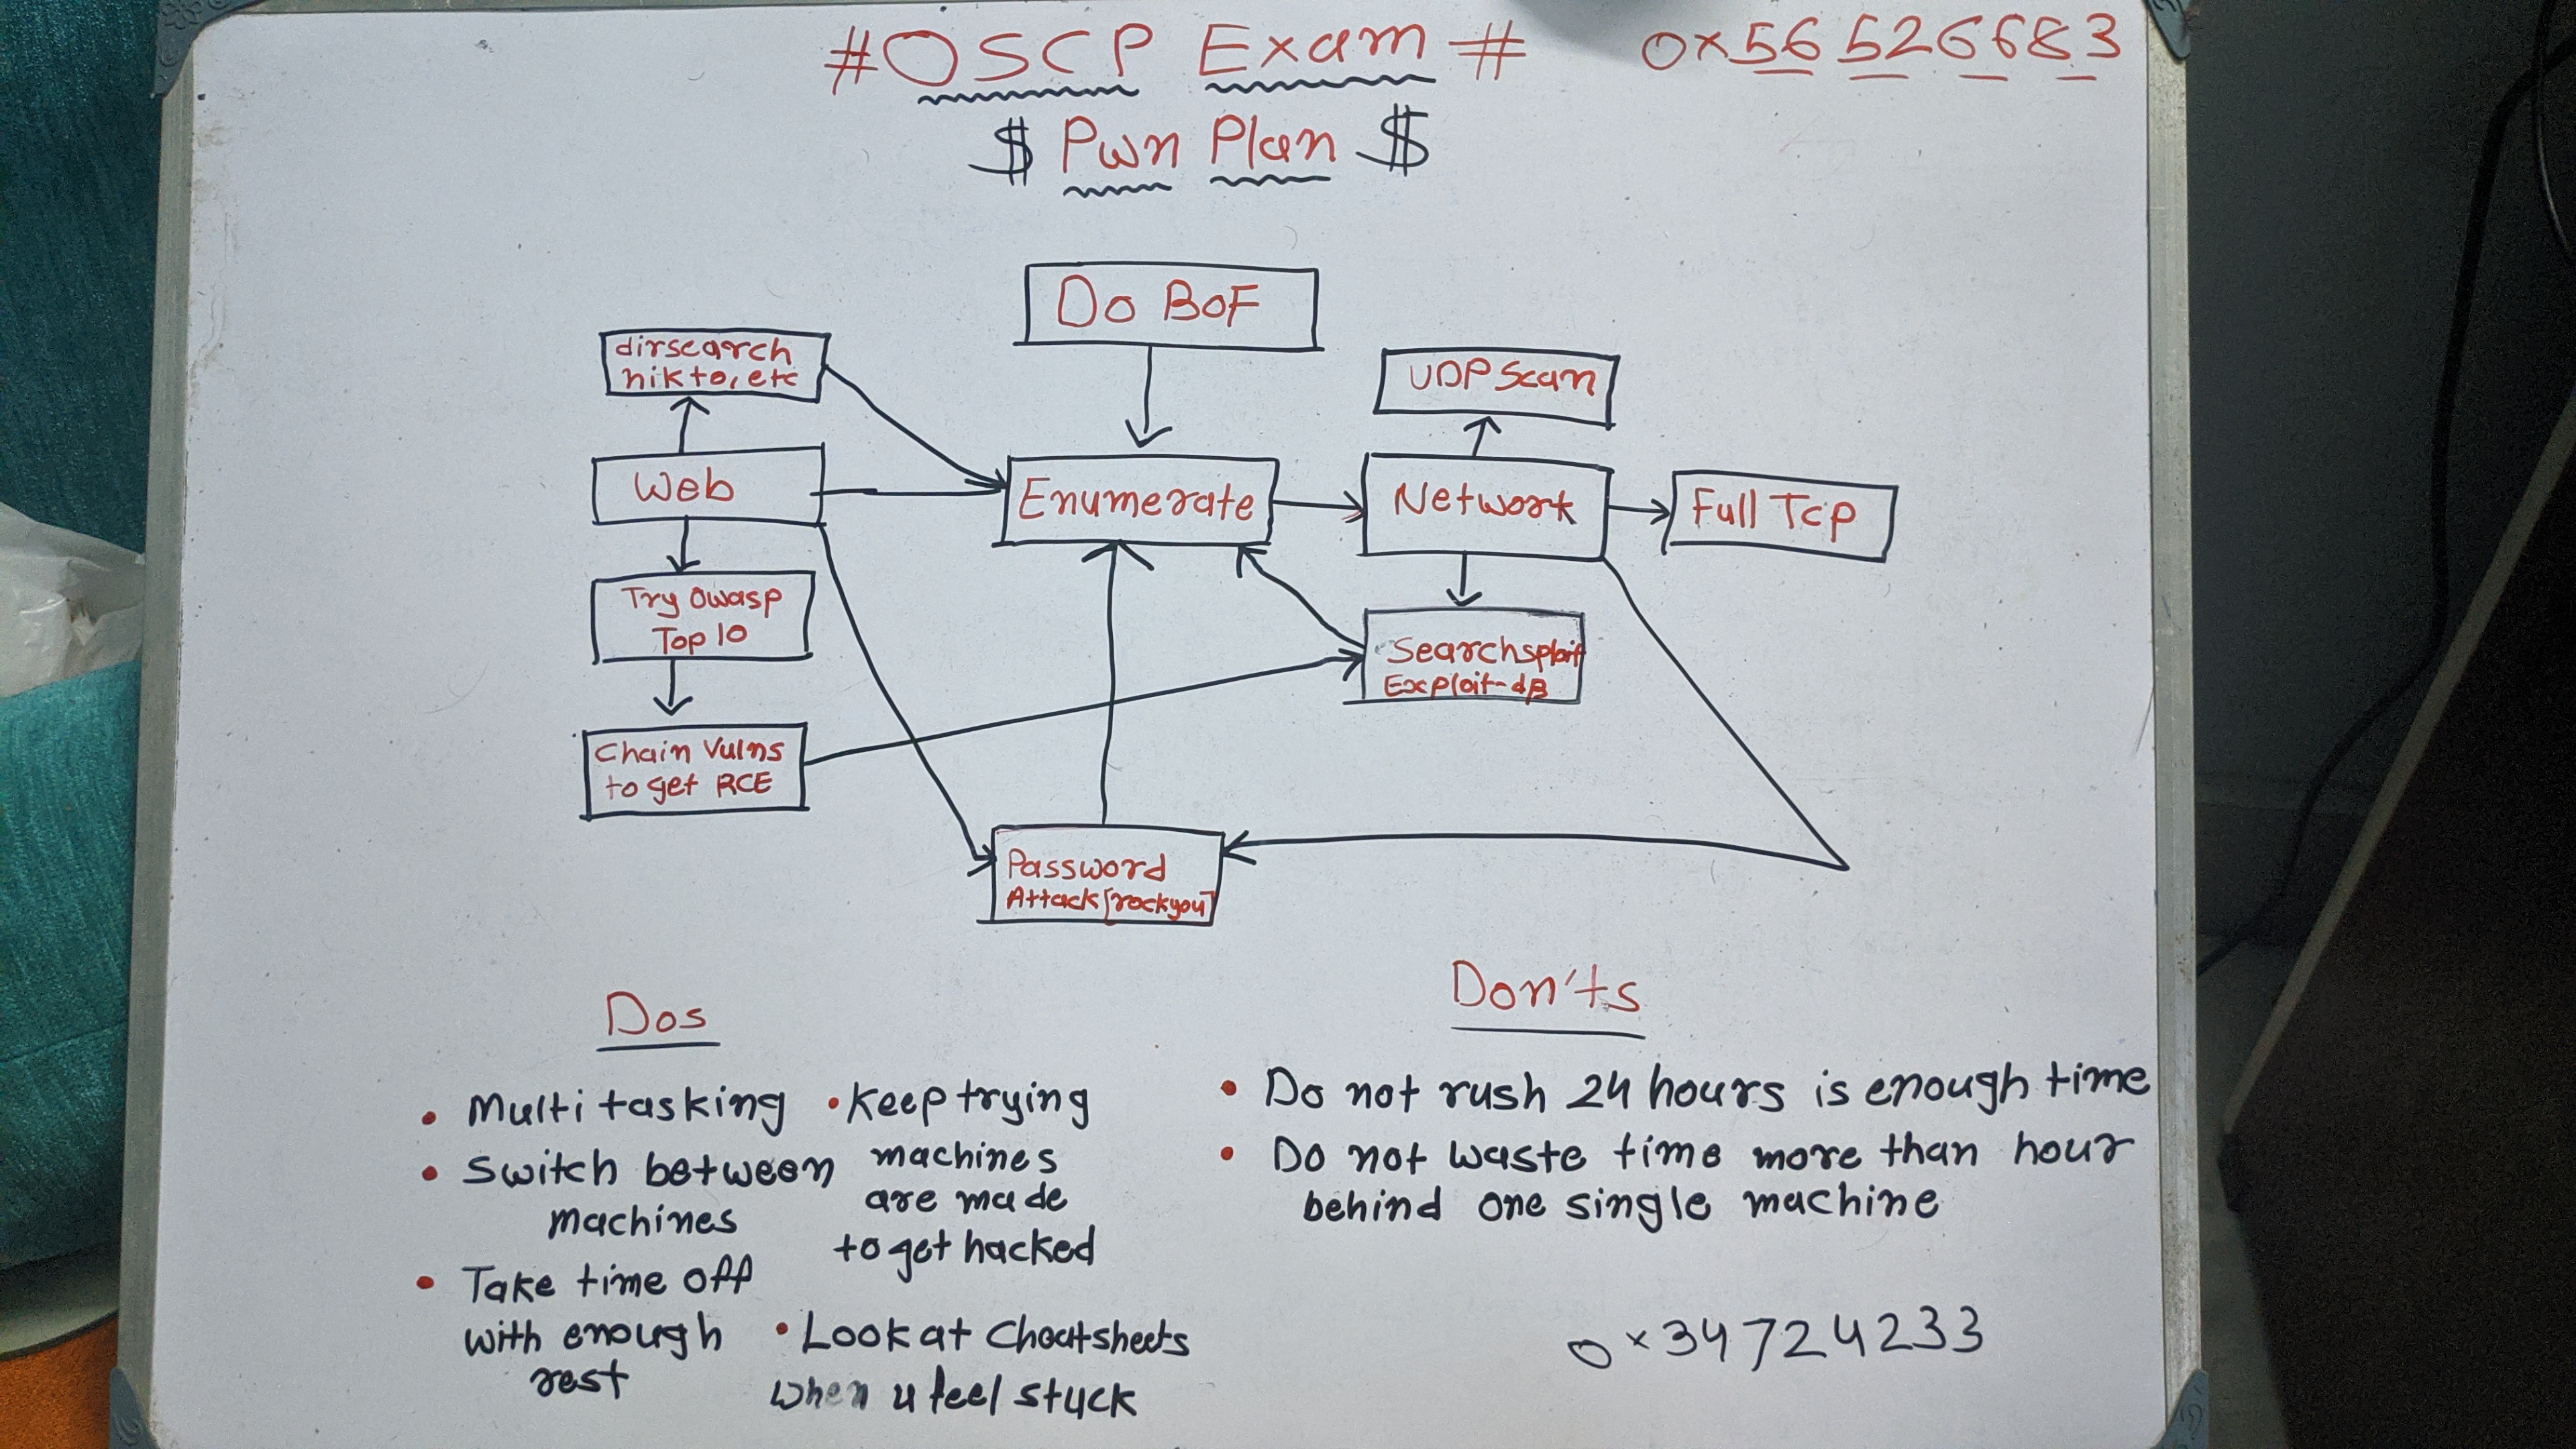 #OSCP Exam#
0x56526683
$ Pwn Plan $
Do BoF
dirsearch
nikto, etc
UDP Scan
Web
Enumerate
Network
Full Tcp
Try Owasp
Top 10
Searchsploit
Exploit-dB
Chain Vulns
to get RCE
Password
Attack [rockyou]
Dos
• Multi tasking
• Switch between
machines
• Take time off
with enough
rest
• Keep trying
machines
are made
to get hacked
• Look at Cheatsheets
when u feel stuck
Don'ts
• Do not rush 24 hours is enough time
• Do not waste time more than hour
behind one single machine
0x34724233